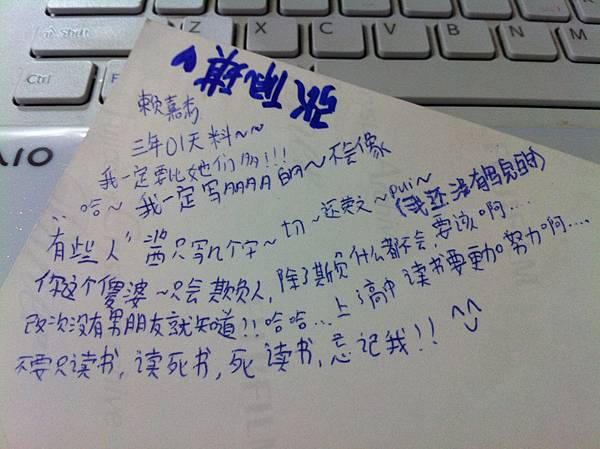 Z X C V B N
Ctrl Fn Alt
AIO
张佩琪
赖嘉
三年01天料~~
我一定要比她们多!!!
哈~ 我一定写的~不会像
"有些人" 酱只写几个字~ 切~还英文~pui~ (我还没有写完的)
你这个傻婆~只会欺负人,除了欺负什么都不会,要该啊....
改次没有男朋友就知道!! 哈哈... 上了高中读书要更加努力啊....
不要只读书,读死书,死读书,忘记我!! ^^